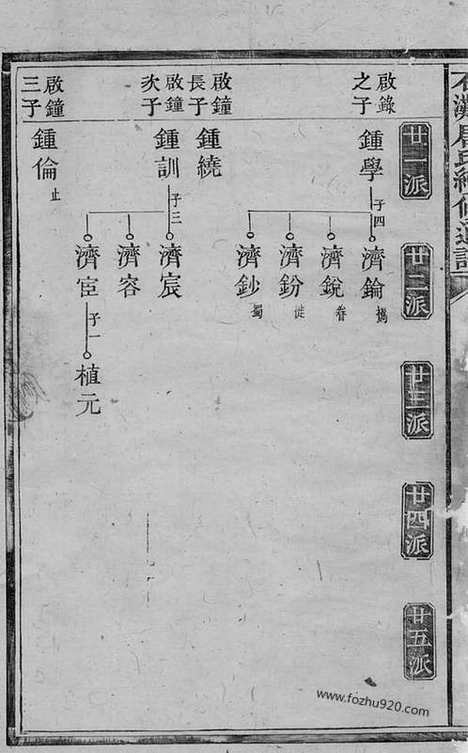 廿一派
廿二派
廿三派
廿四派
廿五派
啟錄之子
鍾學
子四
濟錀
濟銳
濟鈖
濟鈔
啟鐘長子
鍾繞
啟鐘次子
鍾訓
子三
濟宸
濟容
濟宦
子一
植元
啟鐘三子
鍾倫
止
www.fozhu920.com